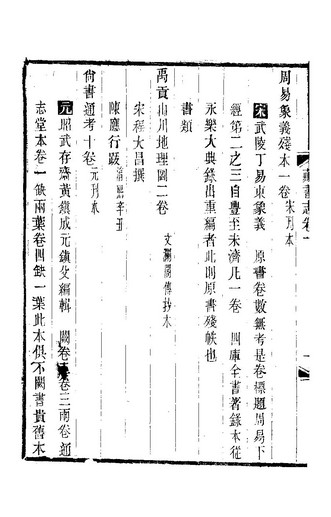 藏書志卷一
周易象義殘本一卷宋刊本
宋武陵丁易東象義　原書卷數無考是卷標題周易下
經第二之三自豐至未濟凡一卷　四庫全書著錄本從
永樂大典錄出重編者此則原書殘帙也
書類
禹貢山川地理圖二卷　文瀾閣傳抄本
宋程大昌撰
陳應行跋淳熙辛丑
尙書通考十卷元刊本
元昭武存齋黃鎮成元鎮父編輯　闕卷三兩卷通
志堂本卷一缺兩葉卷四缺一葉此本俱不闕書貴舊本